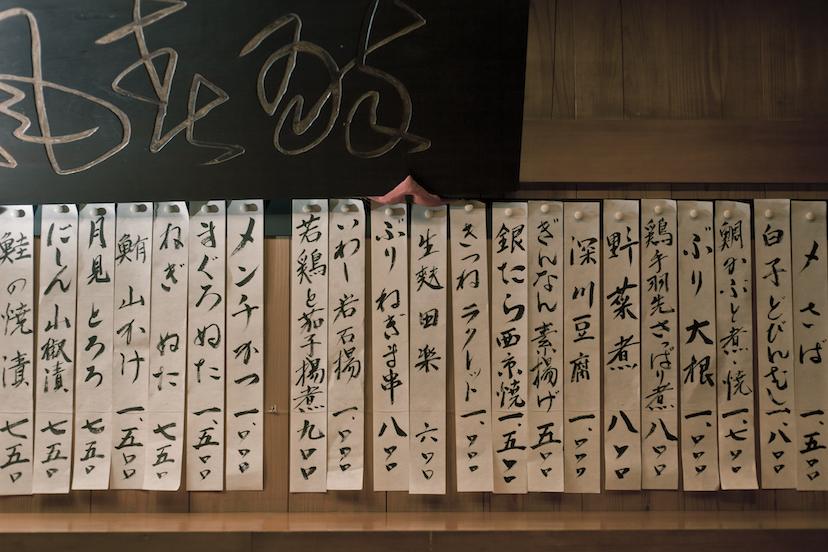 〆さば 一、五〇〇
白子どびんむし 一、八〇〇
鯛かぶと煮・焼 一、七〇〇
ぶり大根 一、〇〇〇
鶏手羽先さっぱり煮 八〇〇
野菜煮 八〇〇
深川豆腐 一、〇〇〇
ぎんなん素揚げ 五〇〇
銀たら西京焼 一、五〇〇
きつねラクレット 一、〇〇〇
生麩田楽 六〇〇
ぶりねぎま串 八〇〇
いわし岩石揚 一、〇〇〇
若鶏と茄子揚煮 九〇〇
メンチかつ 一、〇〇〇
まぐろぬた 一、五〇〇
ねぎぬた 七五〇
鮪山かけ 一、五〇〇
月見とろろ 七五〇
にしん山椒漬 七五〇
鮭の焼漬 七五〇